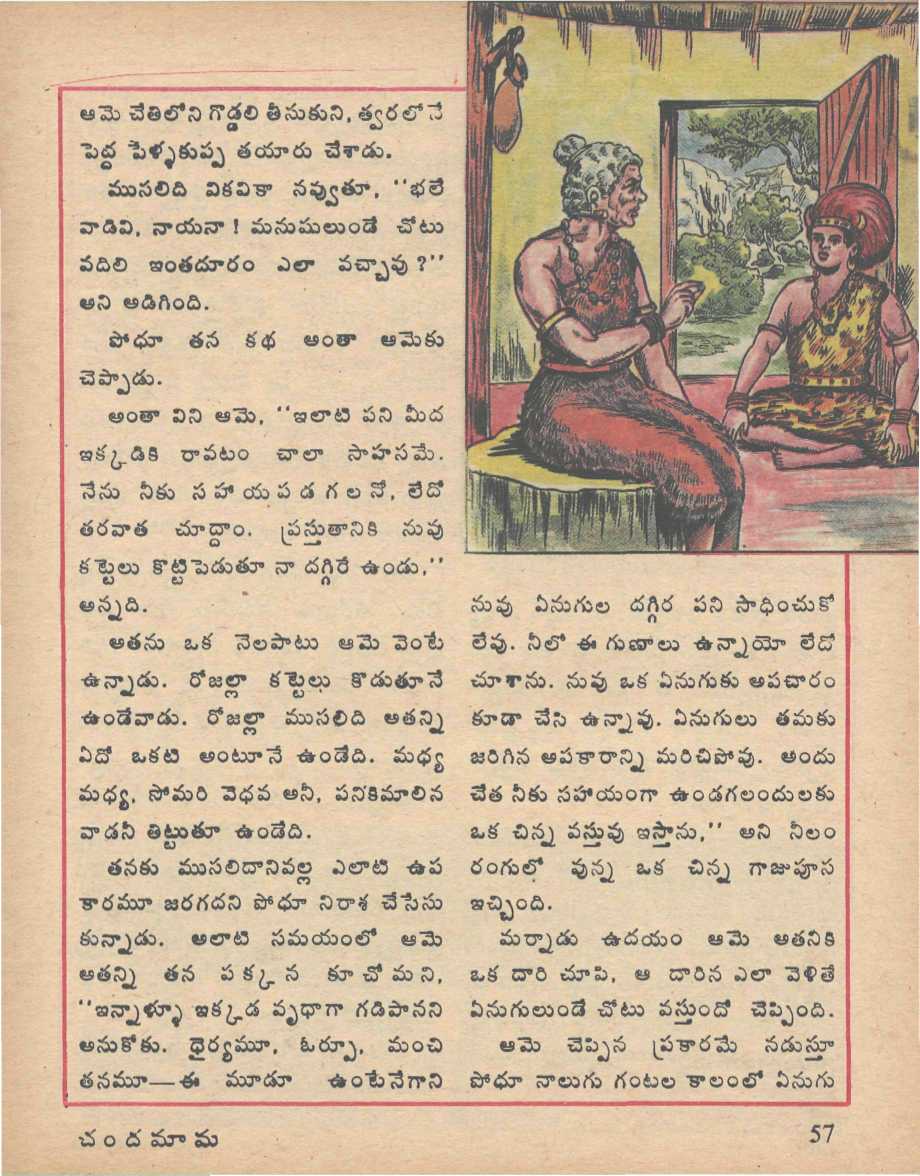 ఆమె చేతిలోని గొడ్డలి తీసుకుని, త్వరలోనే
పెద్ద పేళ్ళకుప్ప తయారు చేశాడు.
ముసలిది వికవికా నవ్వుతూ, ‘‘భలే
వాడివి, నాయనా! మనుషులుండే చోటు
వదిలి ఇంతదూరం ఎలా వచ్చావు?’’
అని అడిగింది.
పోధూ తన కథ అంతా ఆమెకు
చెప్పాడు.
అంతా విని ఆమె, ‘‘ఇలాటి పని మీద
ఇక్కడికి రావటం చాలా సాహసమే.
నేను నీకు సహాయపడగలనో, లేదో
తరవాత చూద్దాం. ప్రస్తుతానికి నువు
కట్టెలు కొట్టిపెడుతూ నా దగ్గిరే ఉండు,’’
అన్నది.
అతను ఒక నెలపాటు ఆమె వెంటే
ఉన్నాడు. రోజల్లా కట్టెలు కొడుతూనే
ఉండేవాడు. రోజల్లా ముసలిది అతన్ని
ఏదో ఒకటి అంటూనే ఉండేది. మధ్య
మధ్య, సోమరి వెధవ అనీ, పనికిమాలిన
వాడనీ తిట్టుతూ ఉండేది.
తనకు ముసలిదానివల్ల ఎలాటి ఉప
కారమూ జరగదని పోధూ నిరాశ చేసేసు
కున్నాడు. అలాటి సమయంలో ఆమె
అతన్ని తన పక్కన కూచోమని,
‘‘ఇన్నాళ్ళూ ఇక్కడ వృధాగా గడిపానని
అనుకోకు. ధైర్యమూ, ఓర్పూ, మంచి
తనమూ—ఈ మూడూ ఉంటేనేగాని
నువు ఏనుగుల దగ్గిర పని సాధించుకో
లేవు. నీలో ఈ గుణాలు ఉన్నాయో లేదో
చూశాను. నువు ఒక ఏనుగుకు అపచారం
కూడా చేసి ఉన్నావు. ఏనుగులు తమకు
జరిగిన అపకారాన్ని మరిచిపోవు. అందు
చేత నీకు సహాయంగా ఉండగలందులకు
ఒక చిన్న వస్తువు ఇస్తాను,’’ అని నీలం
రంగులో వున్న ఒక చిన్న గాజుపూస
ఇచ్చింది.
మర్నాడు ఉదయం ఆమె అతనికి
ఒక దారి చూపి, ఆ దారిన ఎలా వెళితే
ఏనుగులుండే చోటు వస్తుందో చెప్పింది.
ఆమె చెప్పిన ప్రకారమే నడుస్తూ
పోధూ నాలుగు గంటల కాలంలో ఏనుగు
చందమామ
57